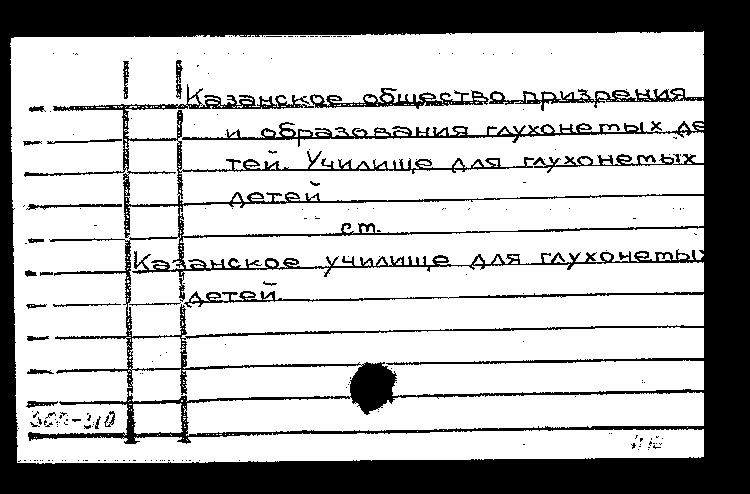 Казанское общество призрения
и образования глухонемых де
тей. Училище для глухонемых
детей
см.
Казанское училище для глухонемых
детей.